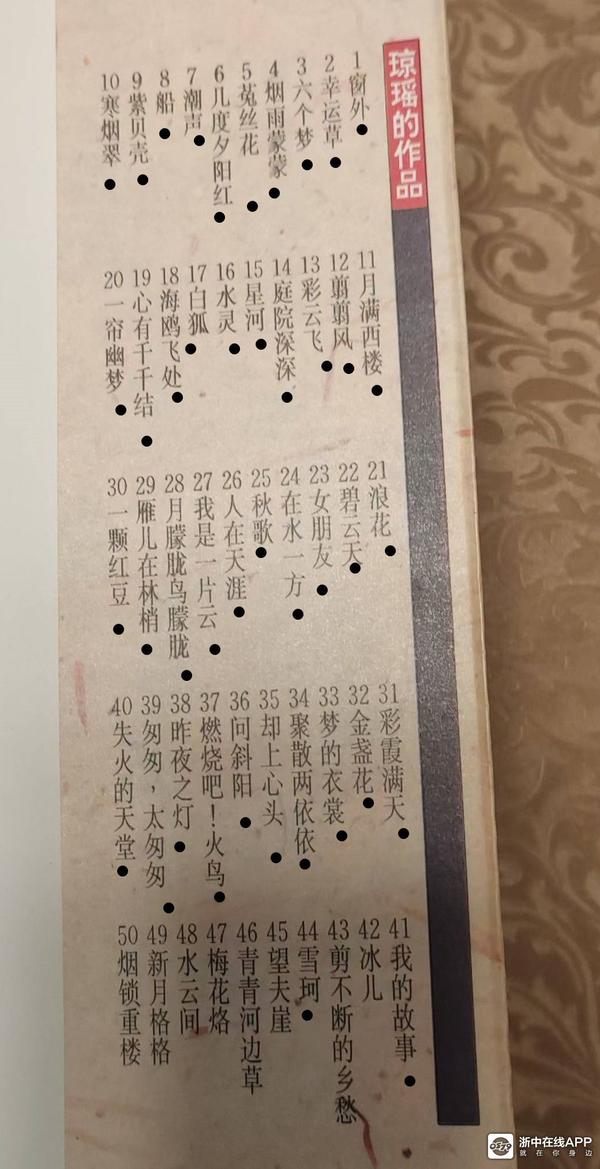 琼瑶的作品
1窗外
2幸运草
3六个梦
4烟雨蒙蒙
5菟丝花
6几度夕阳红
7潮声
8船
9紫贝壳
10寒烟翠
11月满西楼
12翦翦风
13彩云飞
14庭院深深
15星河
16水灵
17白狐
18海鸥飞处
19心有千千结
20一帘幽梦
21浪花
22碧云天
23女朋友
24在水一方
25秋歌
26人在天涯
27我是一片云
28月朦胧鸟朦胧
29雁儿在林梢
30一颗红豆
31彩霞满天
32金盏花
33梦的衣裳
34聚散两依依
35却上心头
36问斜阳
37燃烧吧！火鸟
38昨夜之灯
39匆匆，太匆匆
40失火的天堂
41我的故事
42冰儿
43剪不断的乡愁
44雪珂
45望夫崖
46青青河边草
47梅花烙
48水云间
49新月格格
50烟锁重楼
浙中在线APP
就在你身边